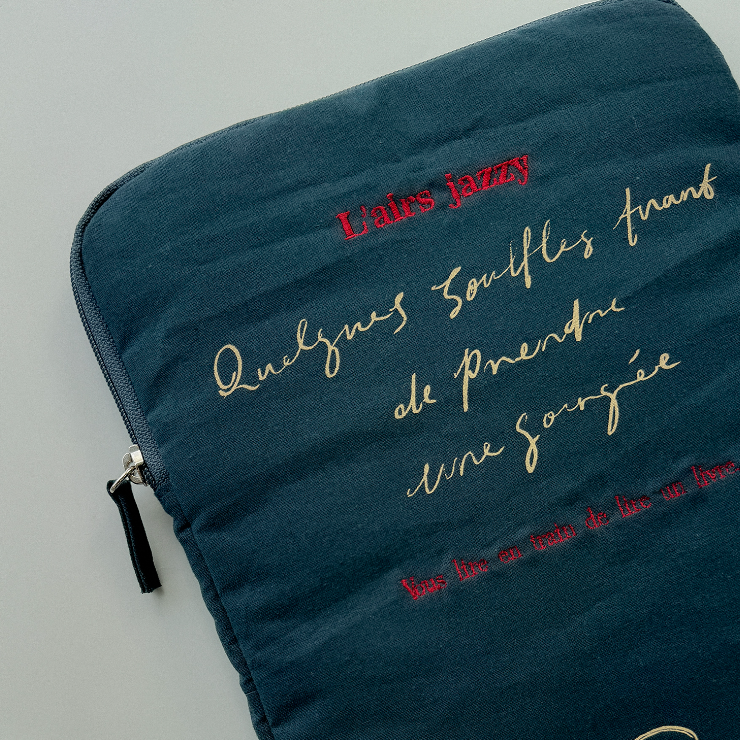 L'airs jazzy
Quelques souffles avant
de prendre
une gorgée
Vous lire en train de lire un livre